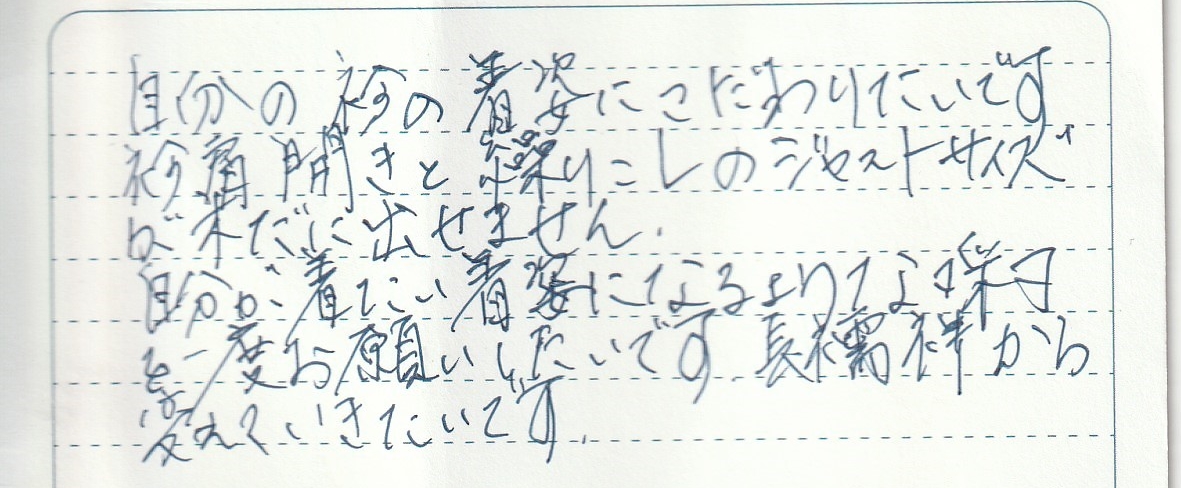 自分の衿の着姿にこだわりたいです
衿肩開きと繰りこしのジャストサイズ
が未だに出せません.
自分が着たい着姿になるよう
を一度お願いしたいです 長襦袢から
変えていきたいです.